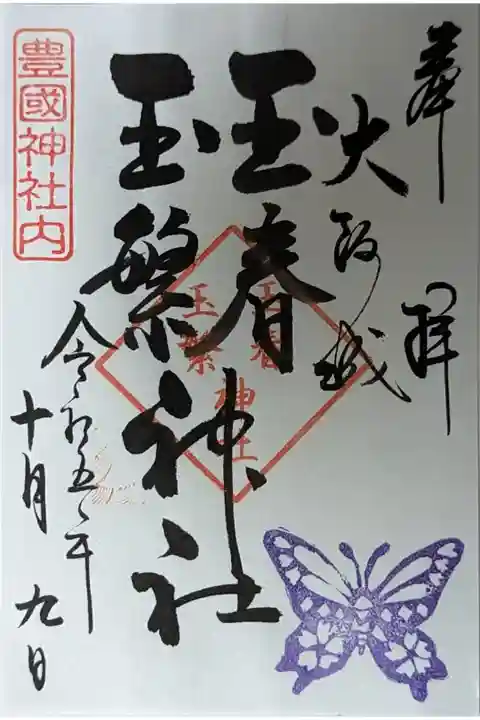 奉拝
大阪城
玉春
玉繁
神社
玉春
玉繁
神社
豊國神社内
令和五年
十月九日